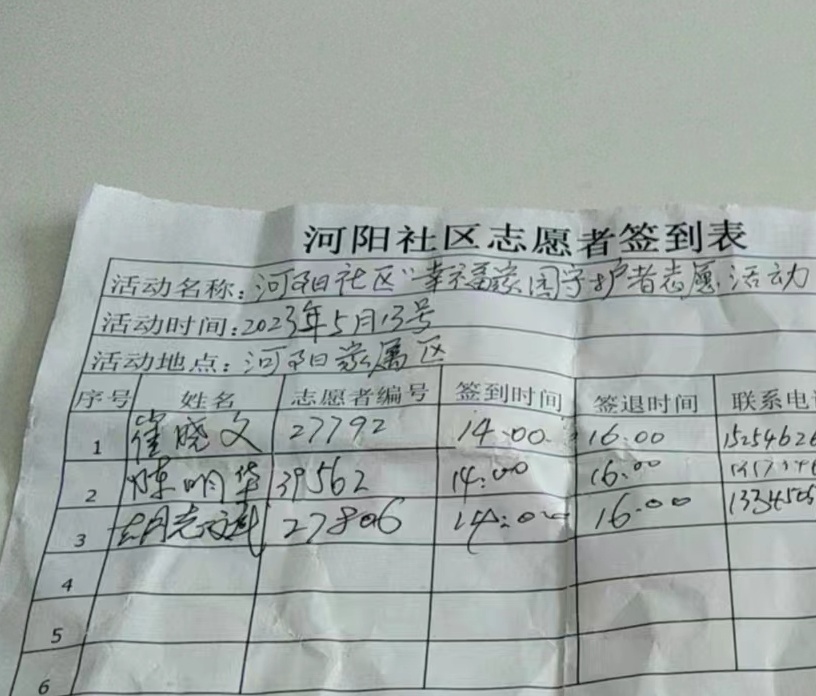 河阳社区志愿者签到表
活动名称：河阳社区“幸福家园守护者志愿活动
活动时间：2023年5月13号
活动地点：河阳家属区
序号 姓名 志愿者编号 签到时间 签退时间 联系电
1 崔晓文 27792 14:00 16:00 1525462
2 陈明华 39562 14:00 16:00
3 27806 14:00 16:00 133450
4
5
6